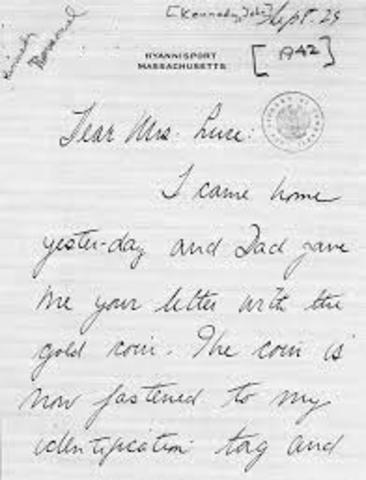 [Kennedy, John] Sept. 29
Personal
[A42]
HYANNISPORT
MASSACHUSETTS
Dear Mrs. Luce:
I came home
yester-day and Dad gave
me your letter with the
gold coin. The coin is
now fastened to my
identification tag and